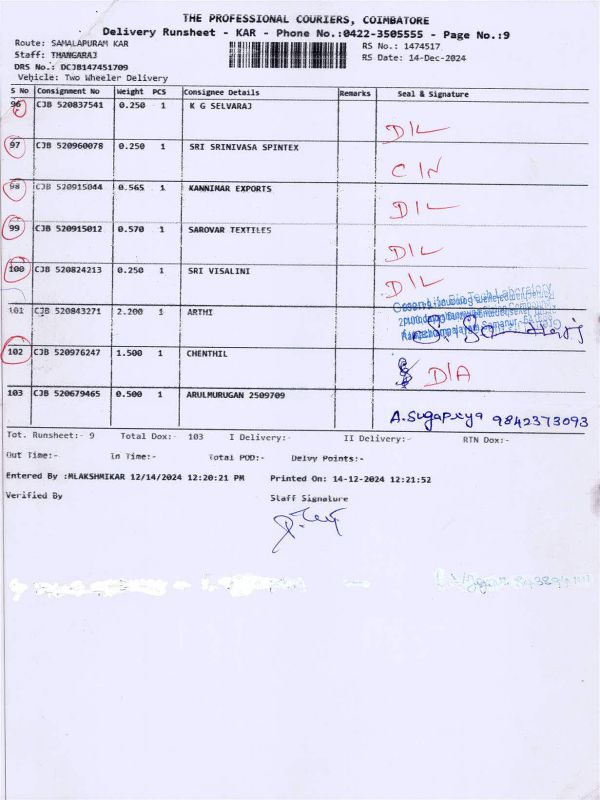 THE PROFESSIONAL COURIERS, COIMBATORE
Delivery Runsheet - KAR - Phone No.:0422-3505555 - Page No.:9
Route: SAMALAPURAM KAR RS No.: 1474517
Staff: THANGARAJ RS Date: 14-Dec-2024
DRS No.: DCJB147451709
Vehicle: Two Wheeler Delivery
S No Consignment No Weight PCS Consignee Details Remarks Seal & Signature
96 CJB 520837541 0.250 1 K G SELVARAJ
D/L
97 CJB 520960078 0.250 1 SRI SRINIVASA SPINTEX
C/N
98 CJB 520915044 0.565 1 KANNIMAR EXPORTS
D/L
99 CJB 520915012 0.570 1 SAROVAR TEXTILES
D/L
100 CJB 520824213 0.250 1 SRI VISALINI
D/L
101 CJB 520843271 2.200 1 ARTHI
102 CJB 520976247 1.500 1 CHENTHIL
D/A
103 CJB 520679465 0.500 1 ARULMURUGAN 2509709
A.Sugapriya 9842373093
Tot. Runsheet:- 9 Total Dox:- 103 I Delivery:- II Delivery:- RTN Dox:-
Out Time:- In Time:- Total POD:- Delvy Points:-
Entered By :MLAKSHMIKAR 12/14/2024 12:20:21 PM Printed On: 14-12-2024 12:21:52
Verified By Staff Signature